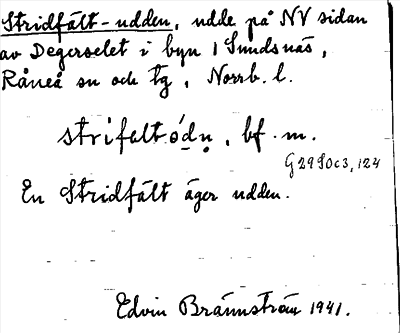 Stridfält-udden, udde på NV sidan
av Degerselet i byn Sundsnäs,
Råneå sn och tg, Norrb. l.
strifalt-ódn, bf. m.
G 29 S0c3, 124
En Stridfält äger udden.
Edvin Brännström 1941.